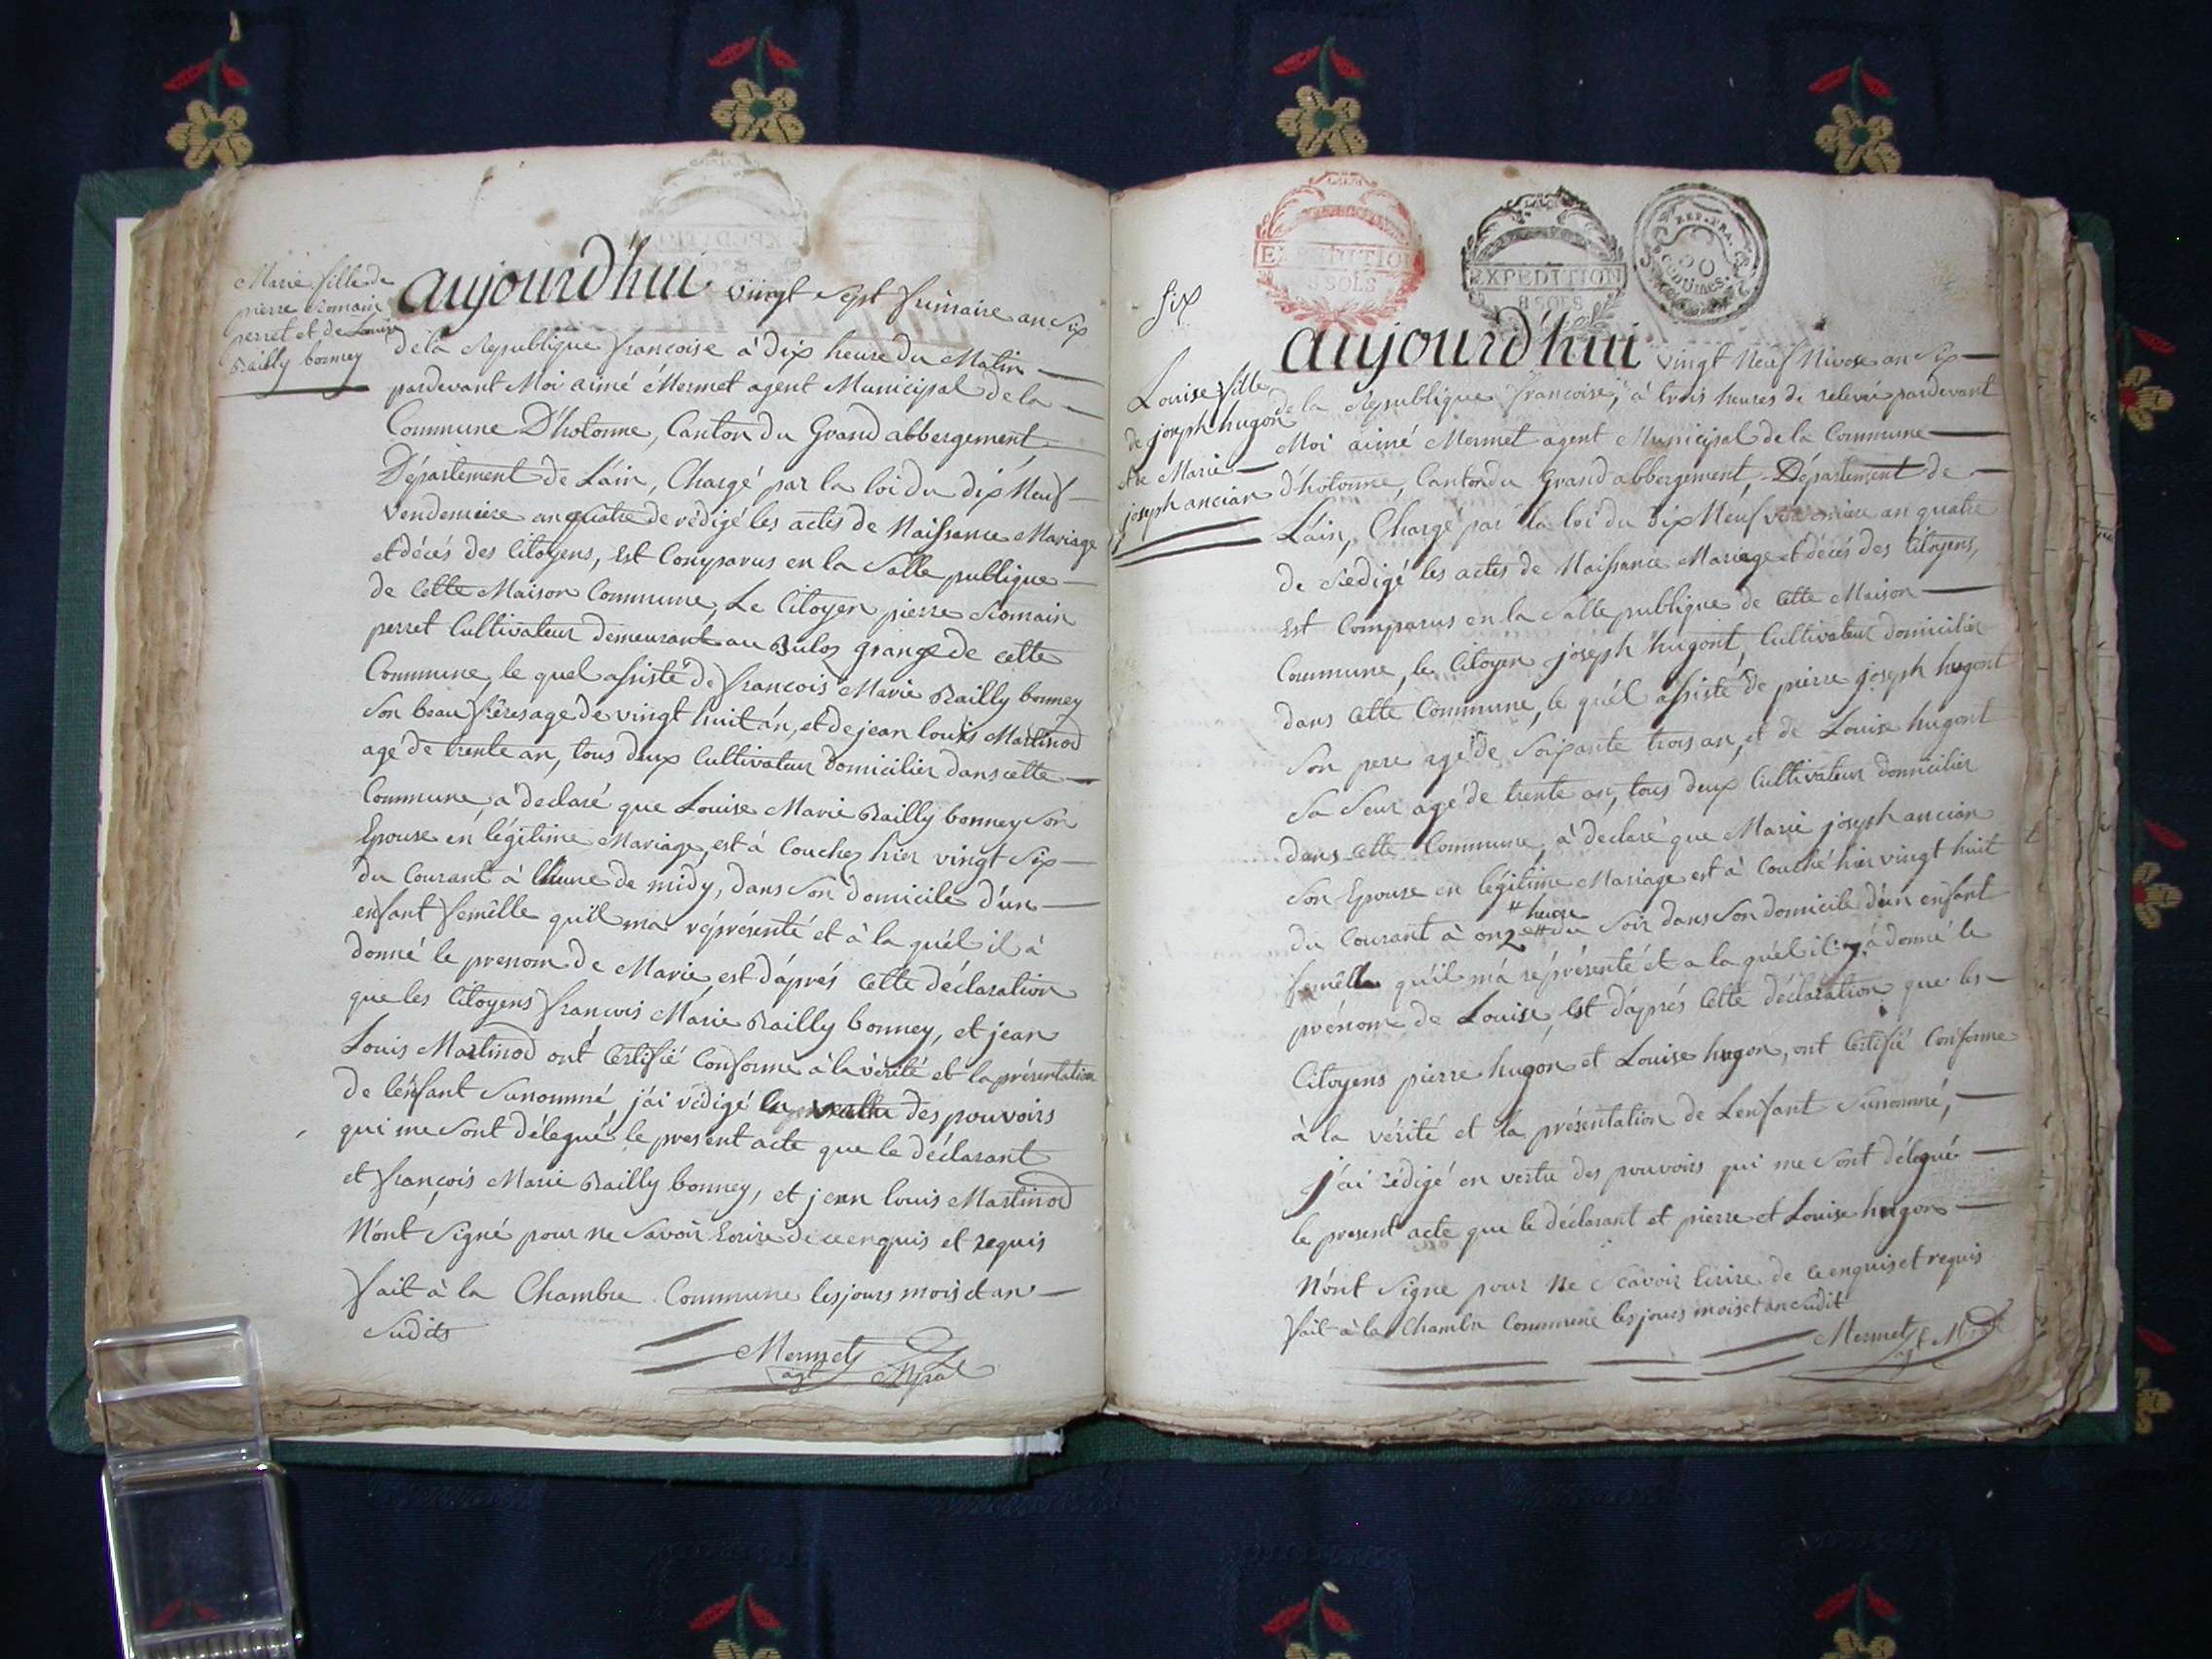 Marie fille de
pierre Romain
perret et de Louise
Bailly bonney
aujourd'hui vingt sept frimaire an Six
de la Republique francoise à dix heure du Matin
pardevant Moi aimé Mermet agent Municipal de la
Commune D'hotonne, Canton du Grand abbergement,
Département de L'ain, Chargé par la loi du dix Neuf
Vendemiere an quatre de rédigé les actes de Naissance Mariage
et décés des Citoyens, est Comparus en la Salle publique
de Cette Maison Commune, Le Citoyen pierre Romain
perret Cultivateur demeurant au grange de cette
Commune, le quel assisté de françois Marie Bailly bonney
Son beau frère age de vingt huit an, et de jean louis Martinod
agé de trente an, tous deux Cultivateur domicilier dans cette
Commune, à declaré que Louise Marie Bailly bonney Son
Epouse en légitime Mariage, est à Couchez hier vingt Six
du Courant à l'heure de midy, dans Son domicile d'un
enfant femêlle qu'il ma répréienté et à la quél il à
donné le prenom de Marie, est d'áprés Cette déclaration
que les Citoyens françois Marie Bailly bonney, et jean
Louis Martinod ont Certifié Conforme à la vérité et la présentation
de l'énfant Sunommé j'ái rédigé des pouvoirs
qui me Sont délegué le present acte que le déclarant
et françois Marie Bailly bonney, et jean louis Martinod
N'ónt Signé pour ne Savoir Ecrire de ce enquis et requis
fait à la Chambre Commune les jours mois et an
Sudits
Mermet
agt Mpal
EXPEDITION
8 SOLS
EXPEDITION
8 SOLS
REP. FRA.
50
Centimes
Six
Louise fille
de joseph hugon
et de Marie
joseph ancian
aujourd'hui vingt Neuf Nivose an Six
de la Republique francoise, à trois heures de relevée pardevant
Moi aimé Mermet agent Municipal de la Commune
d'hotonne, Canton du Grand abbergement, Département de
L'ain, Chargé par la loi du dix Neuf vendemiere an quatre
de Redigé les actes de Naissance Mariage et décés des Citoyens,
est Comparus en la Salle publique de Cette Maison
Commune, le Citoyen joseph hugont, Cultivateur domicilier
dans Cette Commune, le quél assisté de pierre joseph hugont
Son pere agé de Soixante trois an, et de Louise hugont
Sa Seur agé de trente an, tous deux Cultivateur domicilier
dans Cette Commune, à declaré que Marie joseph ancian
Son Epouse en légitime Mariage est à Couché hier vingt huit
du Courant à onz heure du Soir dans Son domicile d'ún enfant
femêlle qu'il m'á répréienté et a la quél il à donné le
prénom de Louise, est d'áprés Cette déclaration que les
Citoyens pierre hugon et Louise hugon, ont Certifié Conforme
à la vérité et la présentation de Lenfant Sunommé,
j'ái rédigé en vertu des pouvoirs qui me Sont délegué
le present acte que le déclarant et pierre et Louise hugon
N'ónt Signe pour Ne Scavoir Ecrire de ce enquis et requis
fait à la Chambre Commune les jours mois et an Sudit
Mermet